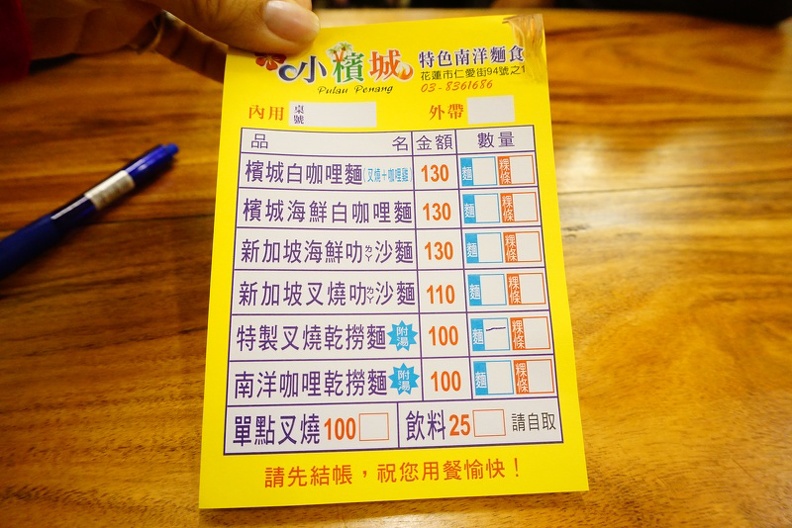 小檳城 特色南洋麵食
Pulau Penang 花蓮市仁愛街94號之1
03-8361686
內用 桌號 外帶
品名 金額 數量
檳城白咖哩麵(叉燒+咖哩雞) 130 麵 粿條
檳城海鮮白咖哩麵 130 麵 粿條
新加坡海鮮叻ㄌㄚˋ沙麵 130 麵 粿條
新加坡叉燒叻ㄌㄚˋ沙麵 110 麵 粿條
特製叉燒乾撈麵 附湯 100 麵 一 粿條
南洋咖哩乾撈麵 附湯 100 麵 粿條
單點叉燒100 飲料25 請自取
請先結帳，祝您用餐愉快！